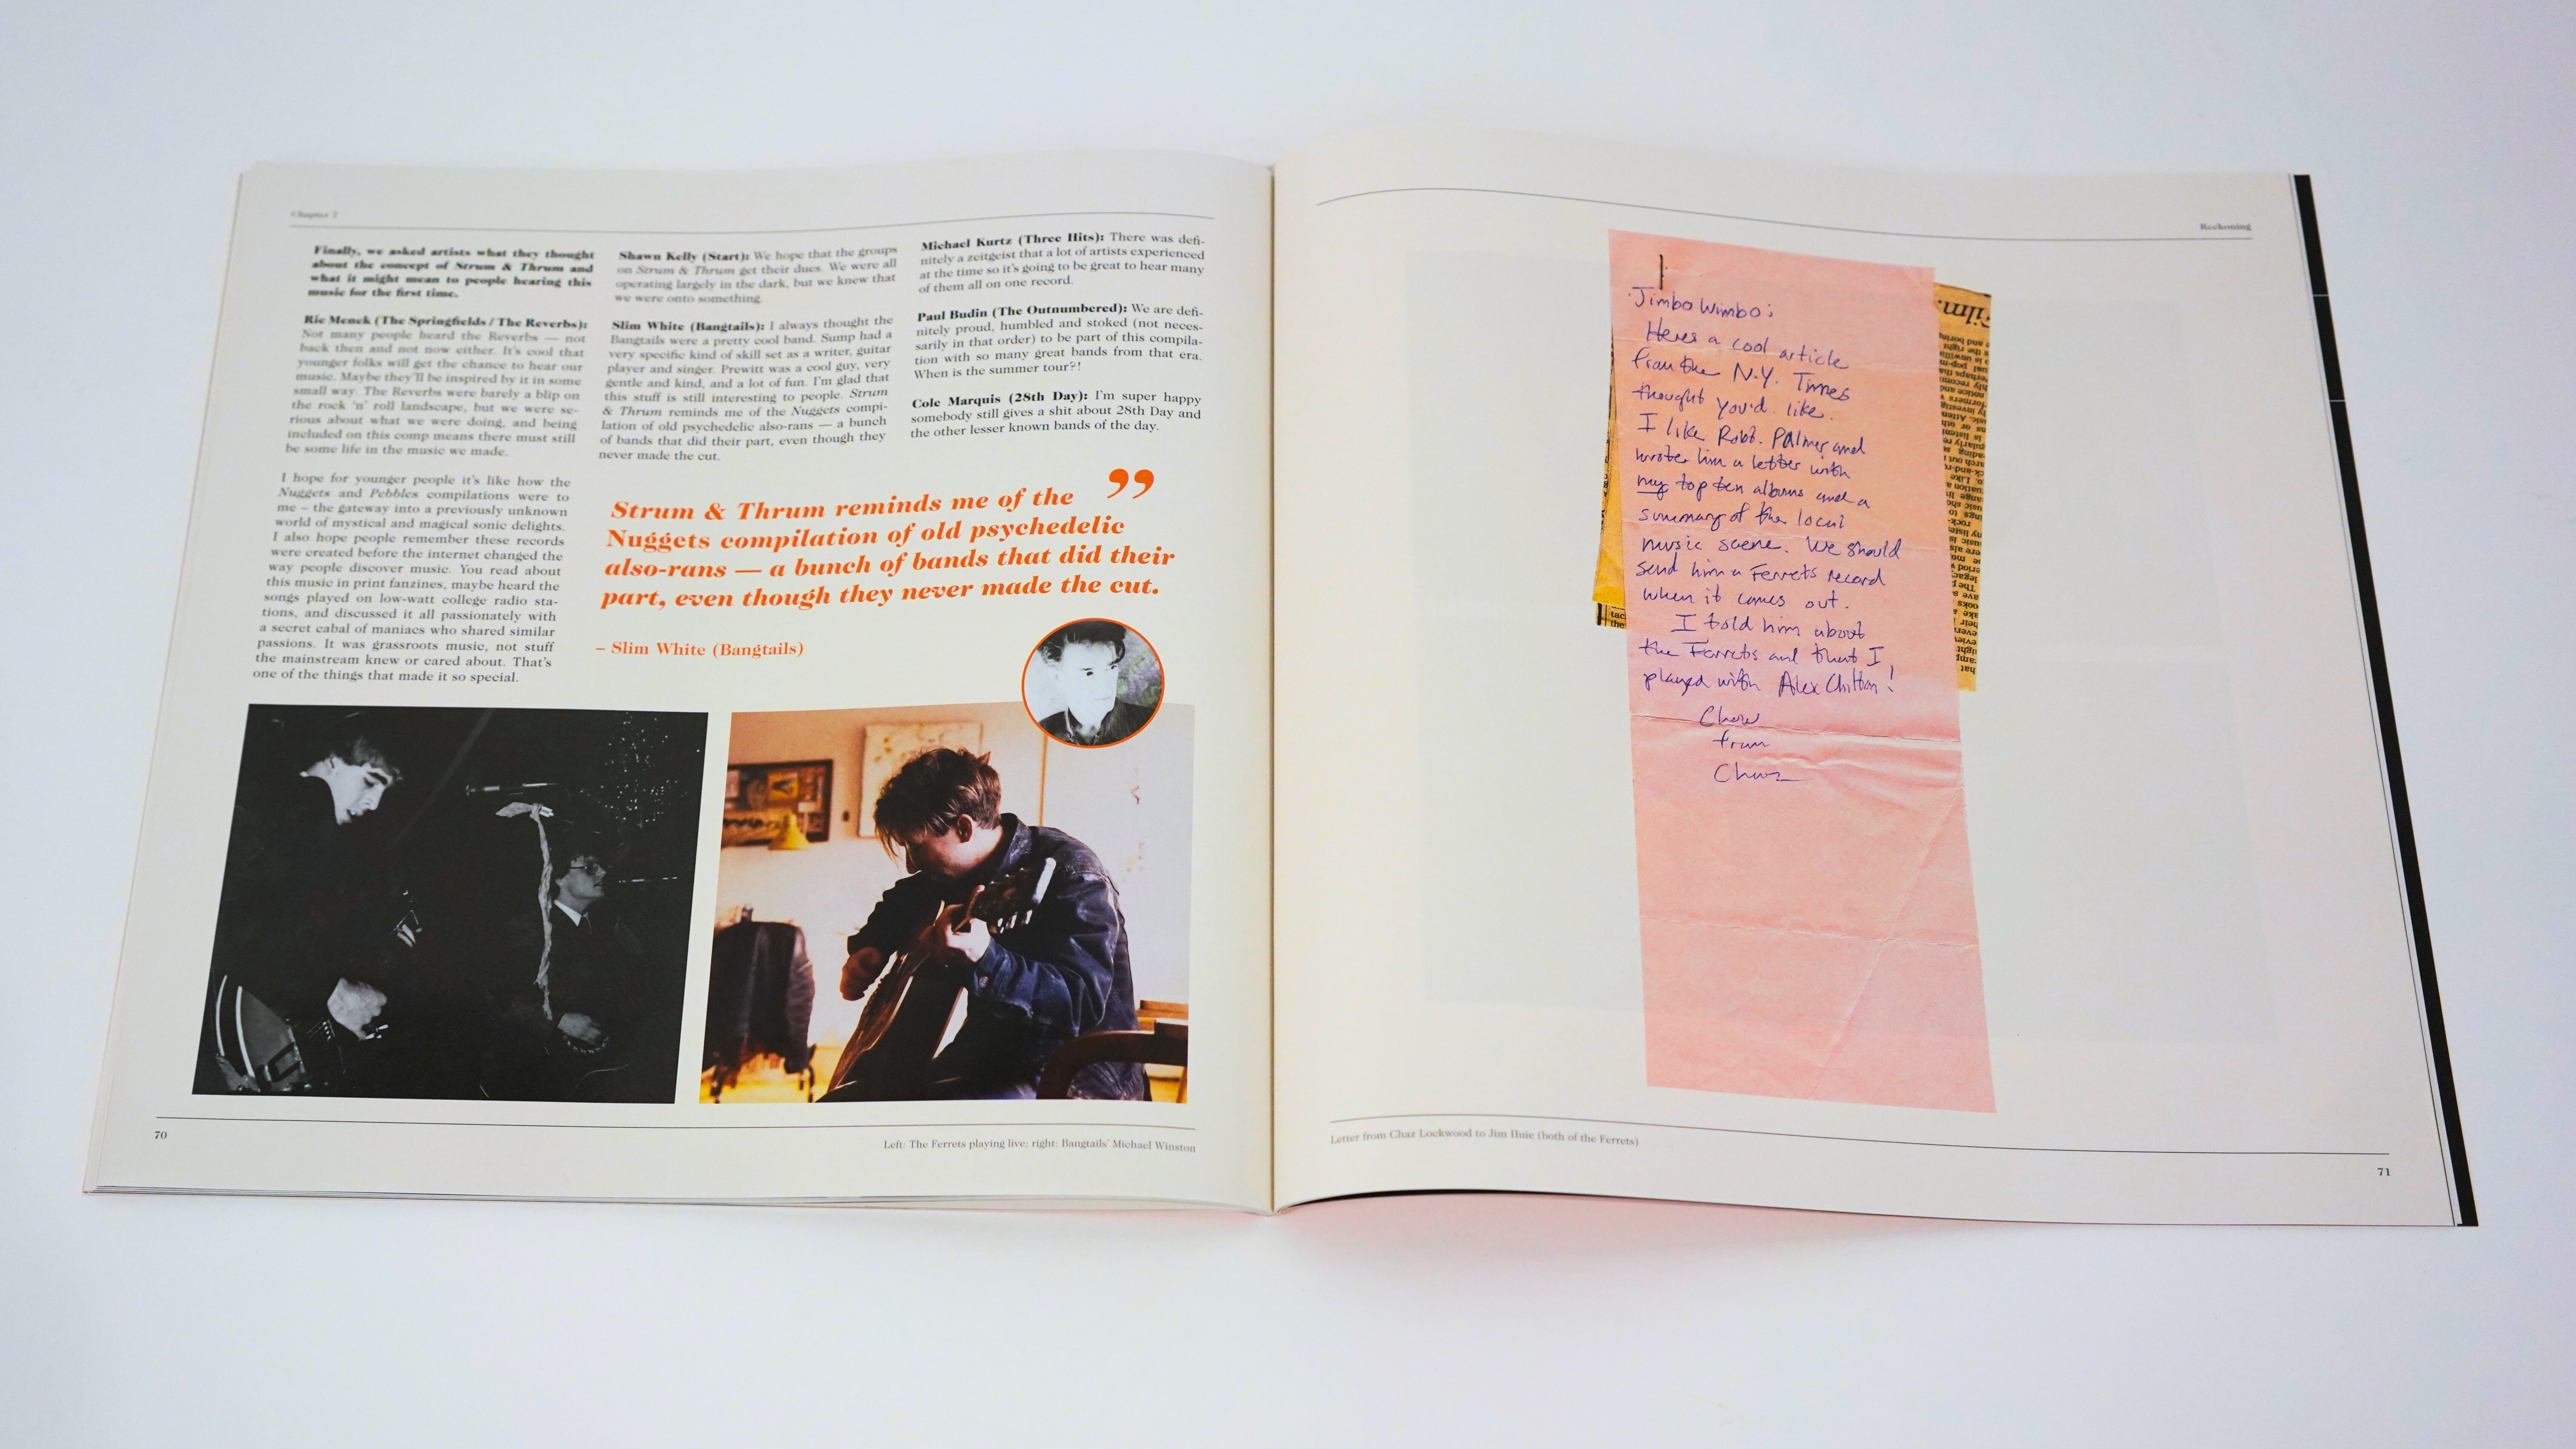 Chapter 7
Finally, we asked artists what they thought
about the concept of Strum & Thrum and
what it might mean to people hearing this
music for the first time.
Ric Menck (The Springfields / The Reverbs):
Not many people heard the Reverbs — not
back then and not now either. It's cool that
younger folks will get the chance to hear our
music. Maybe they'll be inspired by it in some
small way. The Reverbs were barely a blip on
the rock 'n' roll landscape, but we were se-
rious about what we were doing, and being
included on this comp means there must still
be some life in the music we made.
I hope for younger people it's like how the
Nuggets and Pebbles compilations were to
me – the gateway into a previously unknown
world of mystical and magical sonic delights.
I also hope people remember these records
were created before the internet changed the
way people discover music. You read about
this music in print fanzines, maybe heard the
songs played on low-watt college radio sta-
tions, and discussed it all passionately with
a secret cabal of maniacs who shared similar
passions. It was grassroots music, not stuff
the mainstream knew or cared about. That's
one of the things that made it so special.
Shawn Kelly (Start): We hope that the groups
on Strum & Thrum get their dues. We were all
operating largely in the dark, but we knew that
we were onto something.
Slim White (Bangtails): I always thought the
Bangtails were a pretty cool band. Sump had a
very specific kind of skill set as a writer, guitar
player and singer. Prewitt was a cool guy, very
gentle and kind, and a lot of fun. I'm glad that
this stuff is still interesting to people. Strum
& Thrum reminds me of the Nuggets compi-
lation of old psychedelic also-rans — a bunch
of bands that did their part, even though they
never made the cut.
Michael Kurtz (Three Hits): There was defi-
nitely a zeitgeist that a lot of artists experienced
at the time so it's going to be great to hear many
of them all on one record.
Paul Budin (The Outnumbered): We are defi-
nitely proud, humbled and stoked (not neces-
sarily in that order) to be part of this compila-
tion with so many great bands from that era.
When is the summer tour?!
Cole Marquis (28th Day): I'm super happy
somebody still gives a shit about 28th Day and
the other lesser known bands of the day.
”
Strum & Thrum reminds me of the
Nuggets compilation of old psychedelic
also-rans — a bunch of bands that did their
part, even though they never made the cut.
– Slim White (Bangtails)
70
Left: The Ferrets playing live; right: Bangtails' Michael Winston
Reckoning
Jimbo Wimbo:
Heres a cool article
from the N.Y. Times
thought you'd like.
I like Robt. Palmer and
wrote him a letter with
my top ten albums and a
summary of the local
music scene. We should
send him a Ferrets record
when it comes out.
I told him about
the Ferrets and that I
played with Alex Chilton!
Chow
from
Chaz
Letter from Chaz Lockwood to Jim Huie (both of the Ferrets)
71